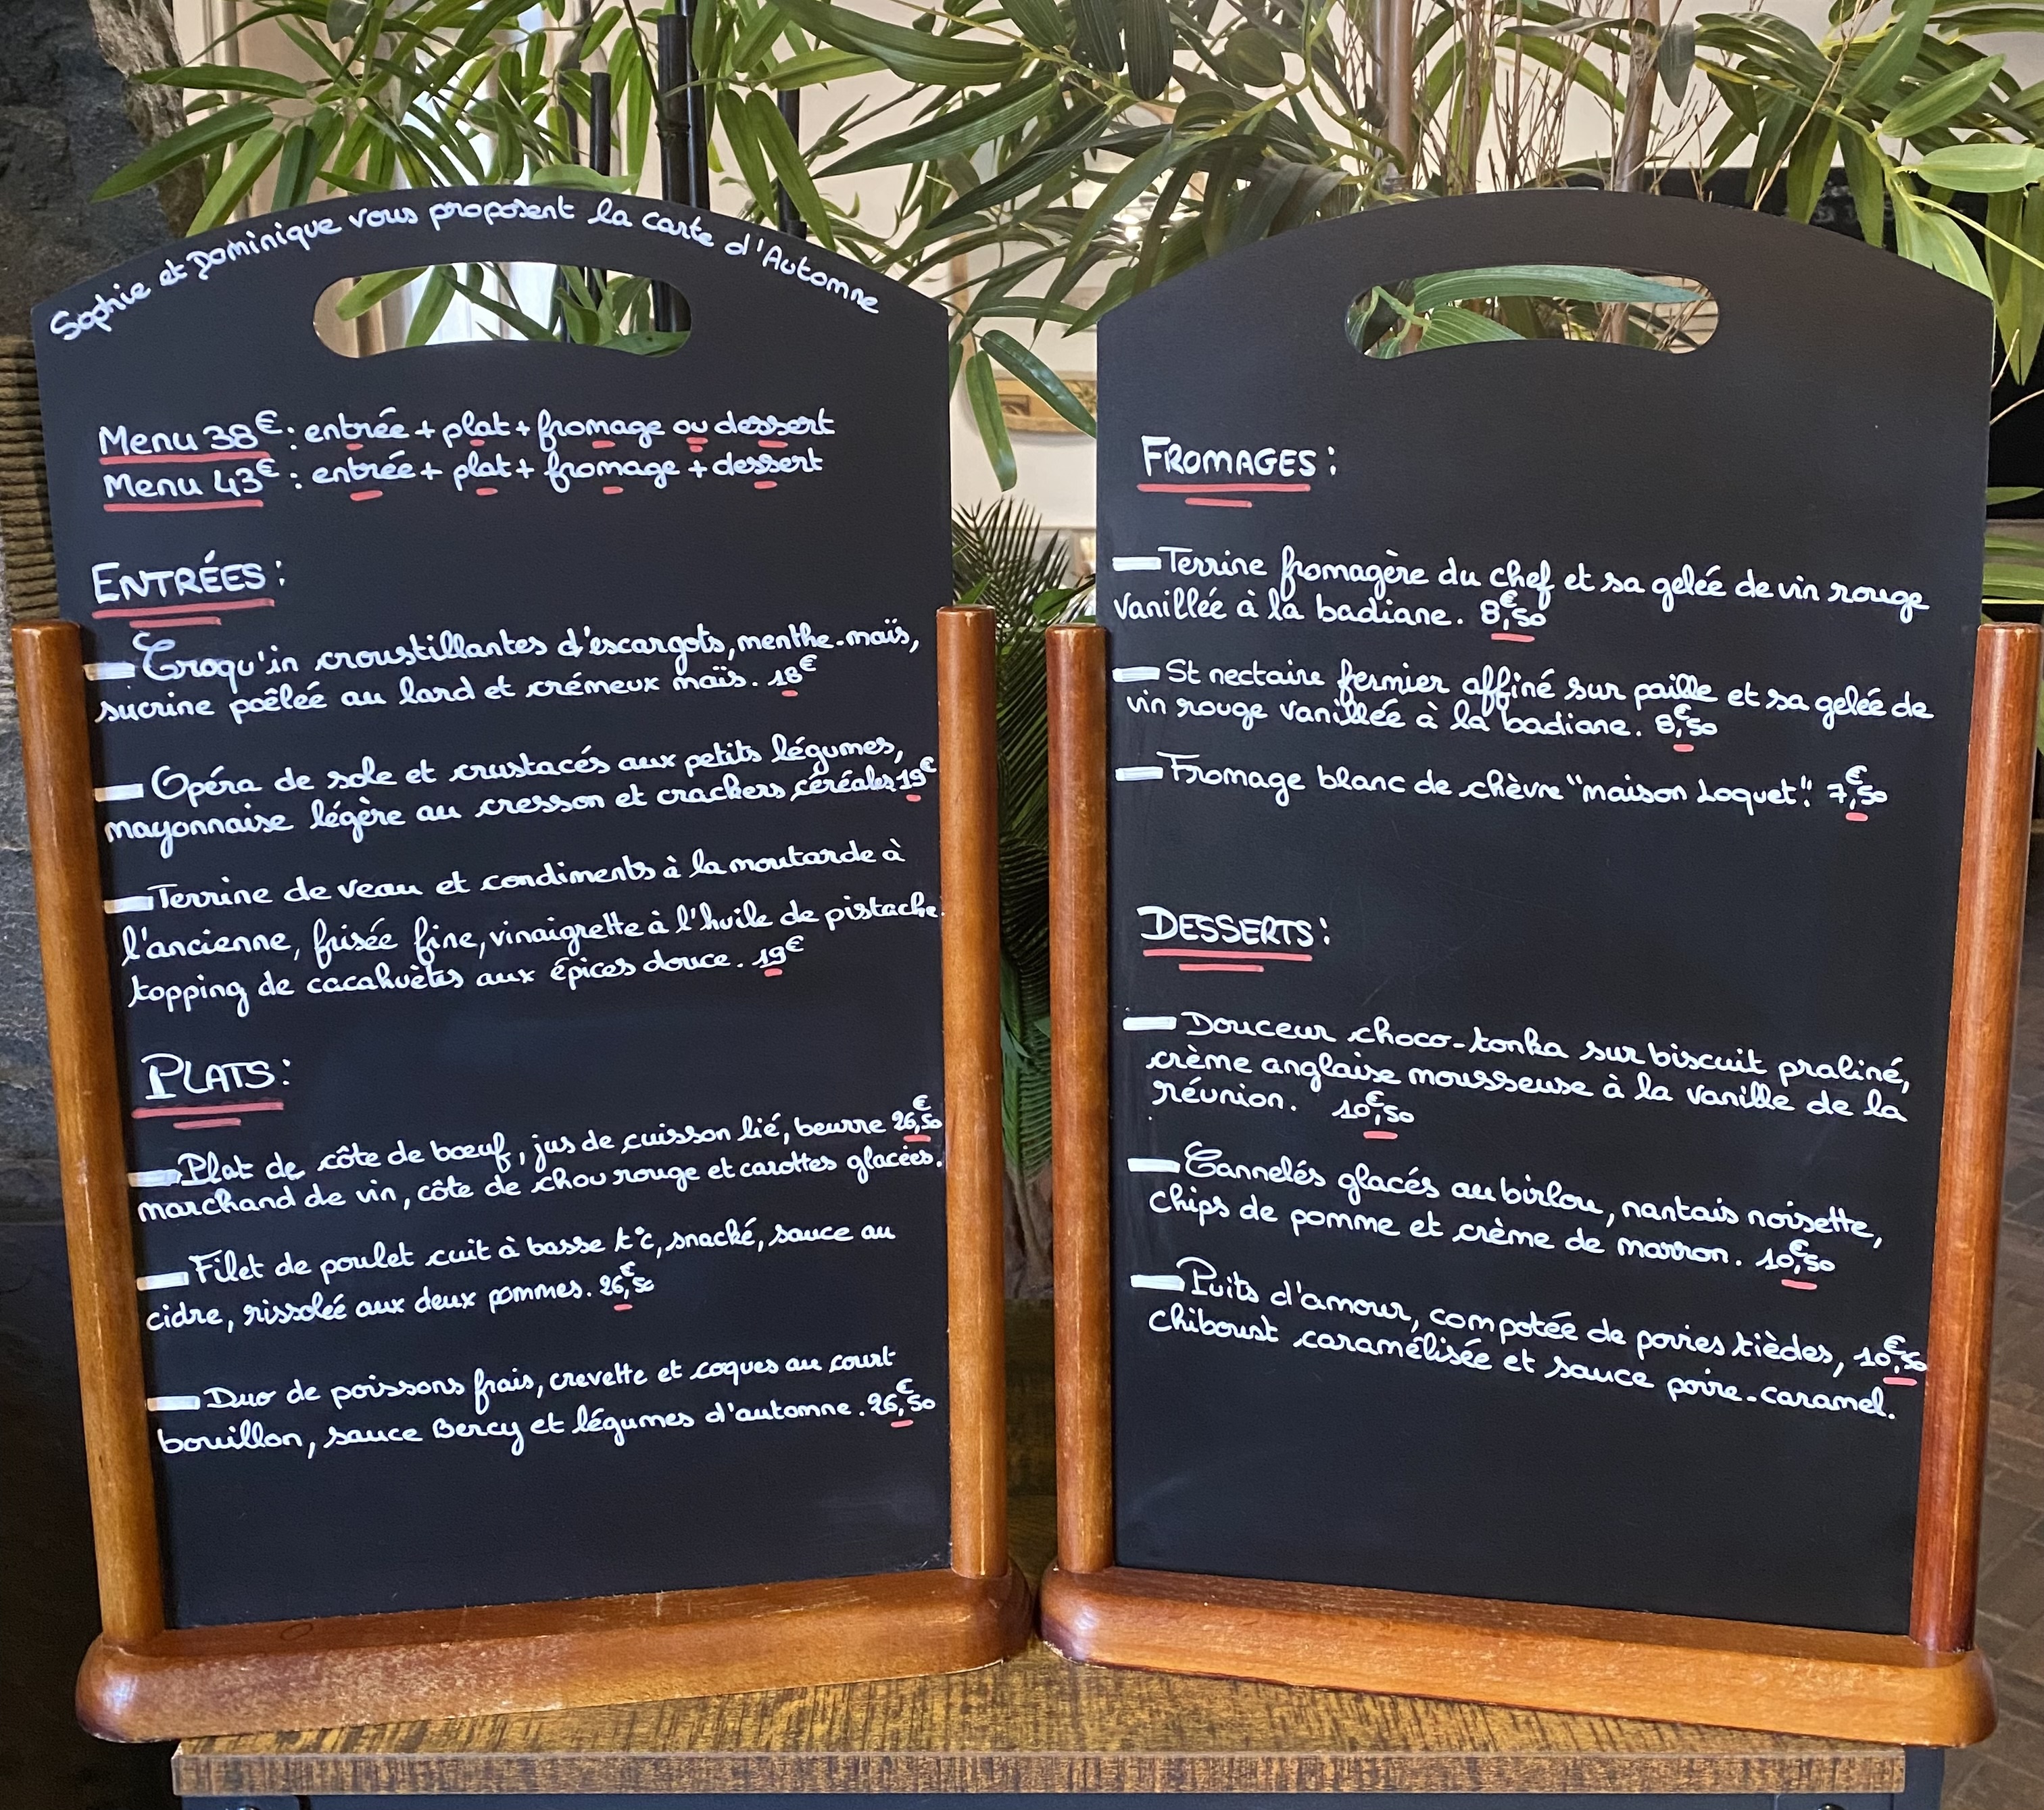 Sophie et Dominique vous proposent la carte d'Automne
Menu 38€ : entrée + plat + fromage ou dessert
Menu 43€ : entrée + plat + fromage + dessert
ENTRÉES :
- Croqu'in croustillantes d'escargots, menthe-maïs,
sucrine poêlée au lard et crémeux maïs. 18€
- Opéra de sole et crustacés aux petits légumes,
mayonnaise légère au cresson et crackers céréales 19€
- Terrine de veau et condiments à la moutarde à
l'ancienne, frisée fine, vinaigrette à l'huile de pistache.
topping de cacahuètes aux épices douce. 19€
PLATS :
- Plat de côte de bœuf, jus de cuisson lié, beurre 26,€50
marchand de vin, côte de chou rouge et carottes glacées.
- Filet de poulet cuit à basse t°c, snacké, sauce au
cidre, rissolée aux deux pommes. 26,€50
- Duo de poissons frais, crevette et coques au court
bouillon, sauce Bercy et légumes d'automne. 26,€50
FROMAGES :
- Terrine fromagère du chef et sa gelée de vin rouge
vanillée à la badiane. 8,€50
- St nectaire fermier affiné sur paille et sa gelée de
vin rouge vanillée à la badiane. 8,€50
- Fromage blanc de chèvre "maison Loquet". 7,€50
DESSERTS :
- Douceur choco-tonka sur biscuit praliné,
crème anglaise mousseuse à la vanille de la
réunion. 10,€50
- Cannelés glacés au birlou, nantais noisette,
chips de pomme et crème de marron. 10,€50
- Puits d'amour, compotée de poires tièdes, 10,€50
chiboust caramélisée et sauce poire-caramel.